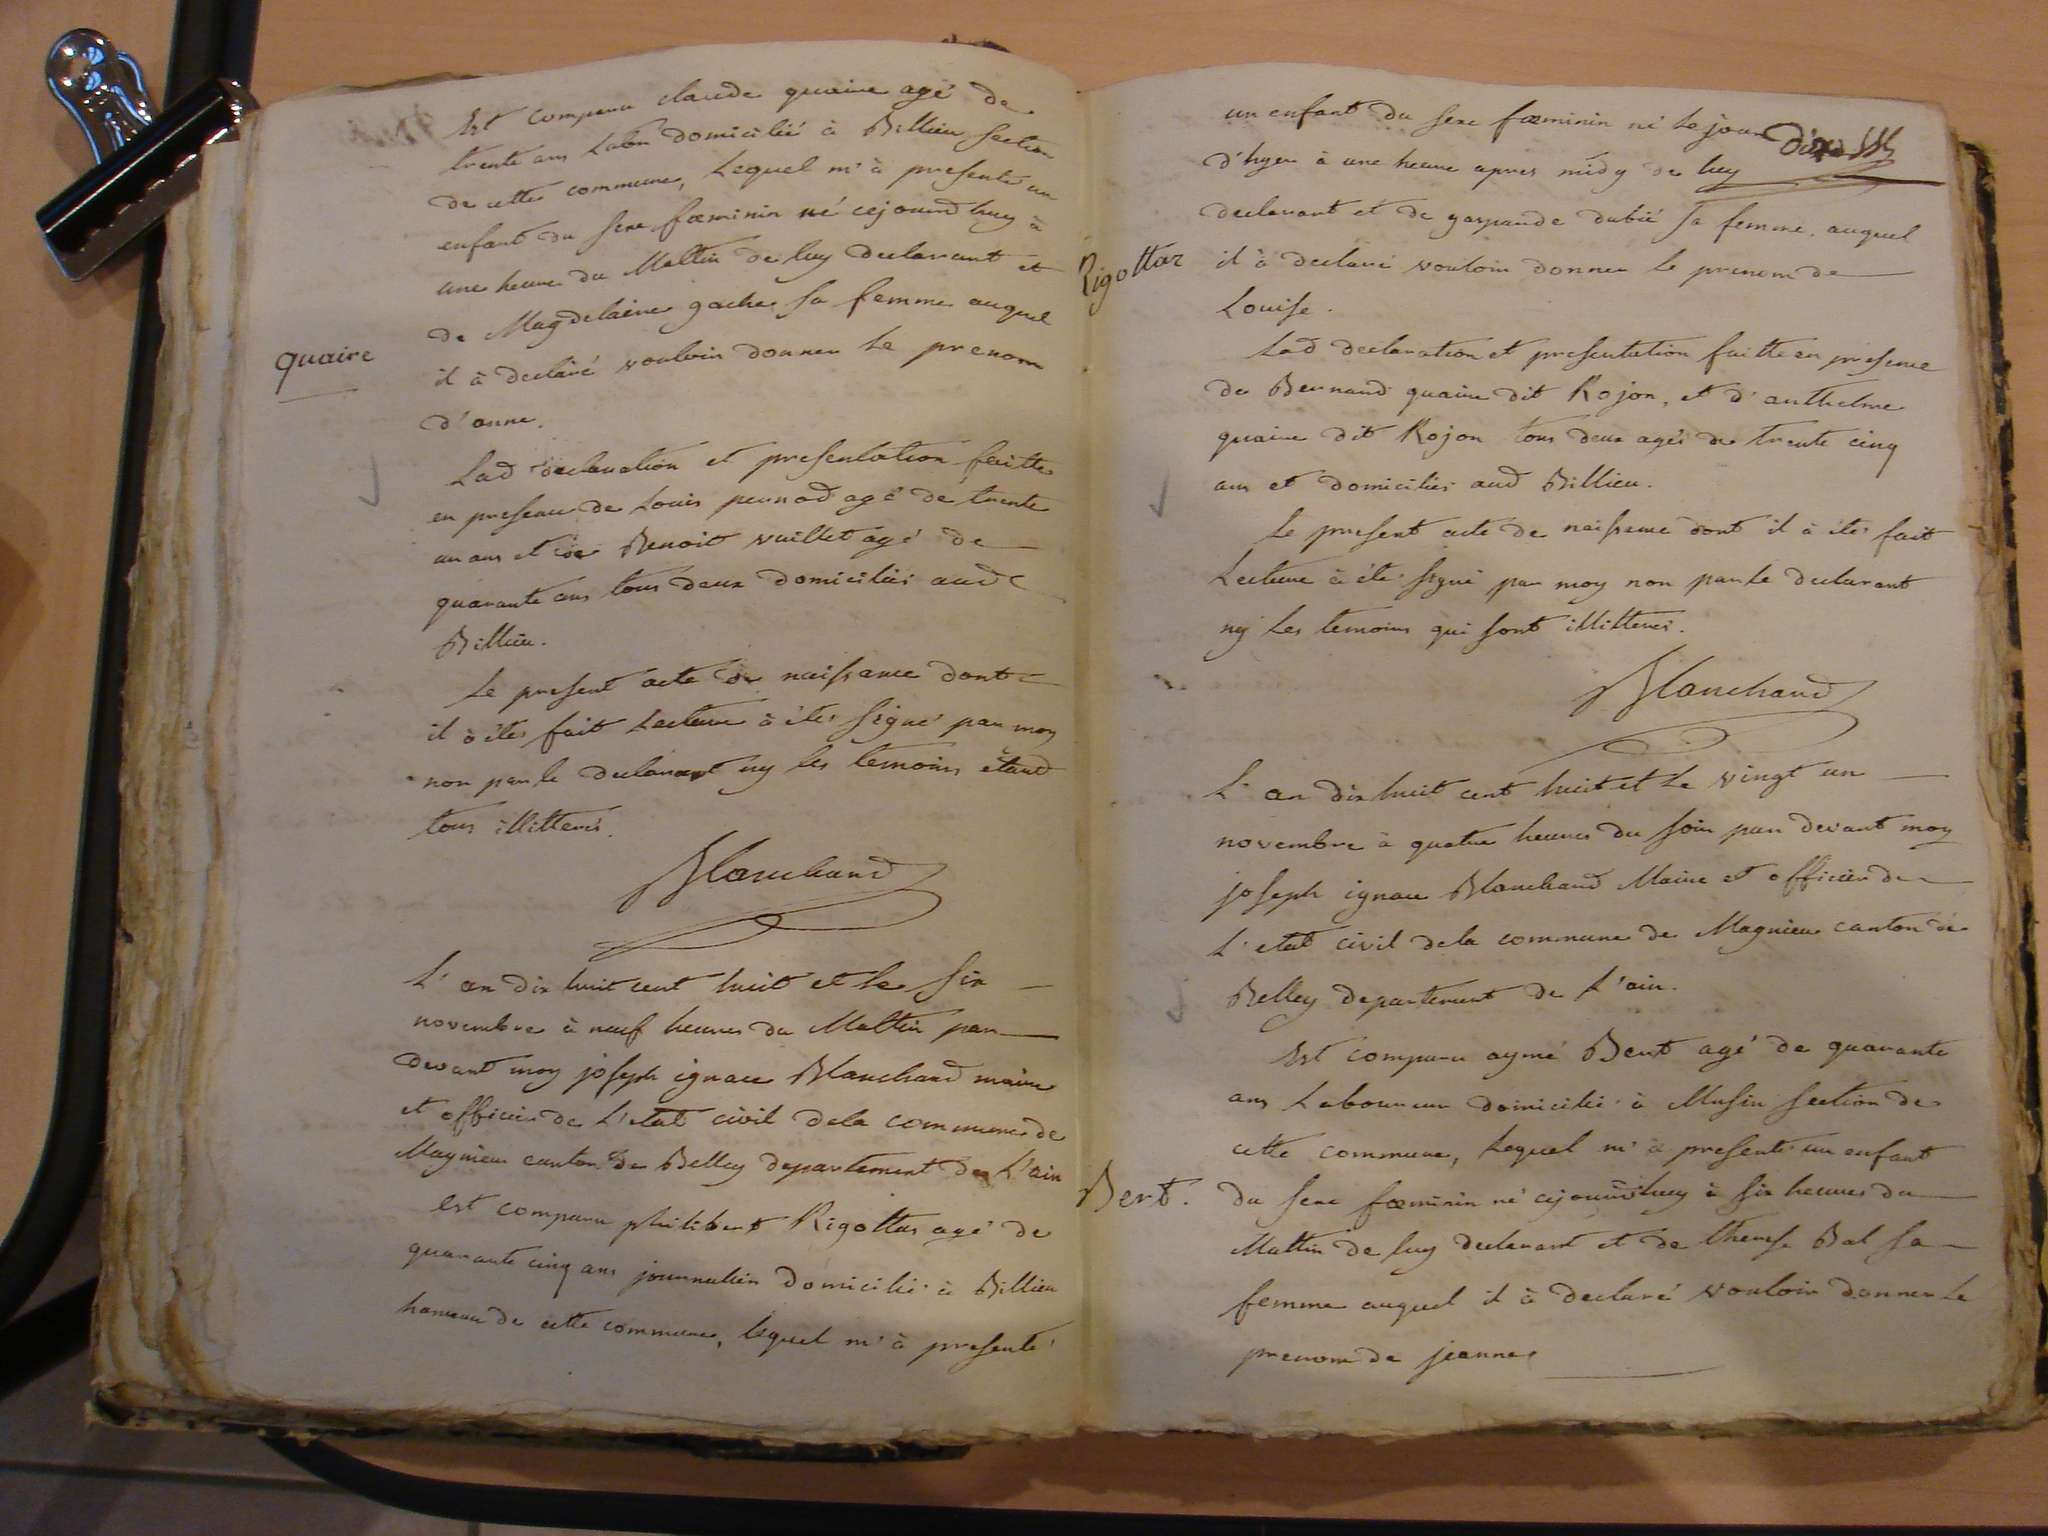 Est comparu claude quaire agé de
trente ans Labr domicilié à Billieu section
de cette commune, Lequel m'à presenté un
enfant du sexe fœminin né cejourd huy à
une heure du Mattin de luy declarant et
de Magdelaine gache sa femme auquel
quaire
il à declaré vouloir donner Le prenom
d'anne.
Lad declaration et presentation faitte
en presence de Louis pernod agé de trente
un ans et de Benoit vuillet agé de
quarante ans tous deux domiciliés aud
Billieu.
Le present acte de naissance dont
il à étés fait Lecture à étés signé par moy
non par le declarant ny les temoins étand
tous illitterés.
Blanchard
L'an dix huit cent huit et le six
novembre à neuf heures du Mattin par
devant moy joseph ignace Blanchard maire
et officier de L'etat civil dela commune de
Magnieu canton de Belley departement de L'ain
est comparu philibert Rigottas agé de
quarante cinq ans journalier domicilié à Billieu
hameau de cette commune, lequel m'à presenté
un enfant du sexe fœminin né le jour
d'hyer à une heure apres midy de luy
declarant et de sa femme. auquel
Rigottaz
il à declaré vouloir donner le prenom de
Louise.
Lad declaration et presentation faitte en presence
de Bernard quaire dit Rojon, et d'anthelme
quaire dit Rojon tous deux agés de trente cinq
ans et domiciliés aud Billieu.
Le present acte de naissance dont il à étés fait
Lecture à été signé par moy non par le declarant
ny les temoins qui sont illitterés.
Blanchard
L'an dix huit cent huit et le vingt un
novembre à quatre heures du soir par devant moy
joseph ignace Blanchard Maire et officier de
L'etat civil dela commune de Magnieu canton de
Belley departement de L'ain.
Est comparu aymé Bert agé de quarante
ans Laboureur domicilié à Musin section de
cette commune, Lequel m'à presenté un enfant
Bert.
du sexe fœminin né cejourdhuy à six heures du
Mattin de luy declarant et de therese Bal sa
femme auquel il à declaré vouloir donner le
prenom de jeanne